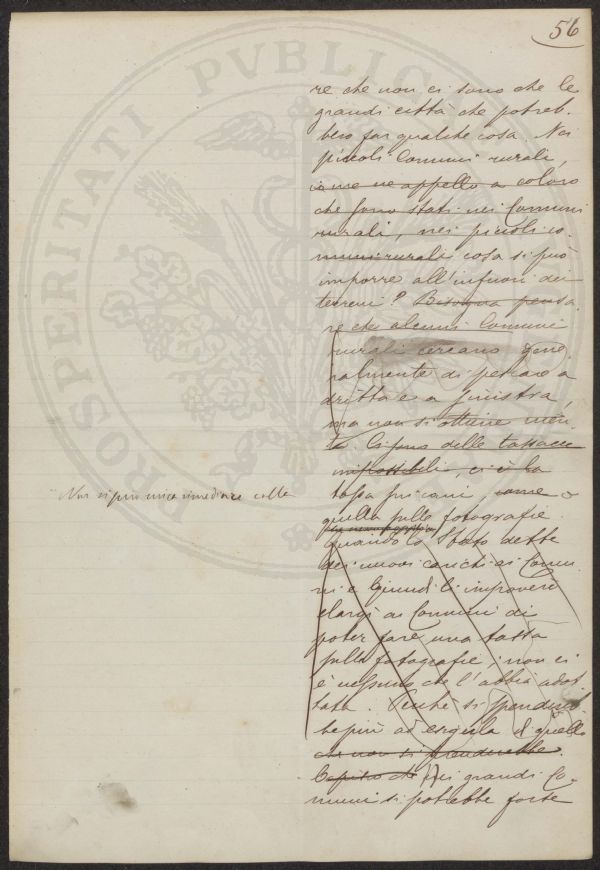 56
PROSPERITATI PUBLICAE
re che non ci sono che le
grandi città che potreb.
bero far qualche cosa. Nei
piccoli Comuni rurali,
come ne appello a coloro
che sono stati nei Comuni
rurali, nei piccoli co
muni rurali cosa si può
imporre all'infuori dei
terreni? Bisogna pensa
re che alcuni Comuni
rurali cercano gene
ralmente di pescare a
dritta e a sinistra,
ma non si ottiene nien
te. Ci sono delle tasse
impossibili, ci è la
tassa sui cani, come
quella sulle fotografie.
Non si può mica rimediare colle
Quando lo Stato dette
dei nuovi carichi ai Comu
ni e quindi li impoverì
elargì ai Comuni di
poter fare una tassa
sulle fotografie; non ci
è nessuno che l'abbia adot
tata. Perchè si spendereb
be più ad esigerla di quello
che non si prenderebbe.
Capisco che nei grandi Co-
muni si potrebbe forse